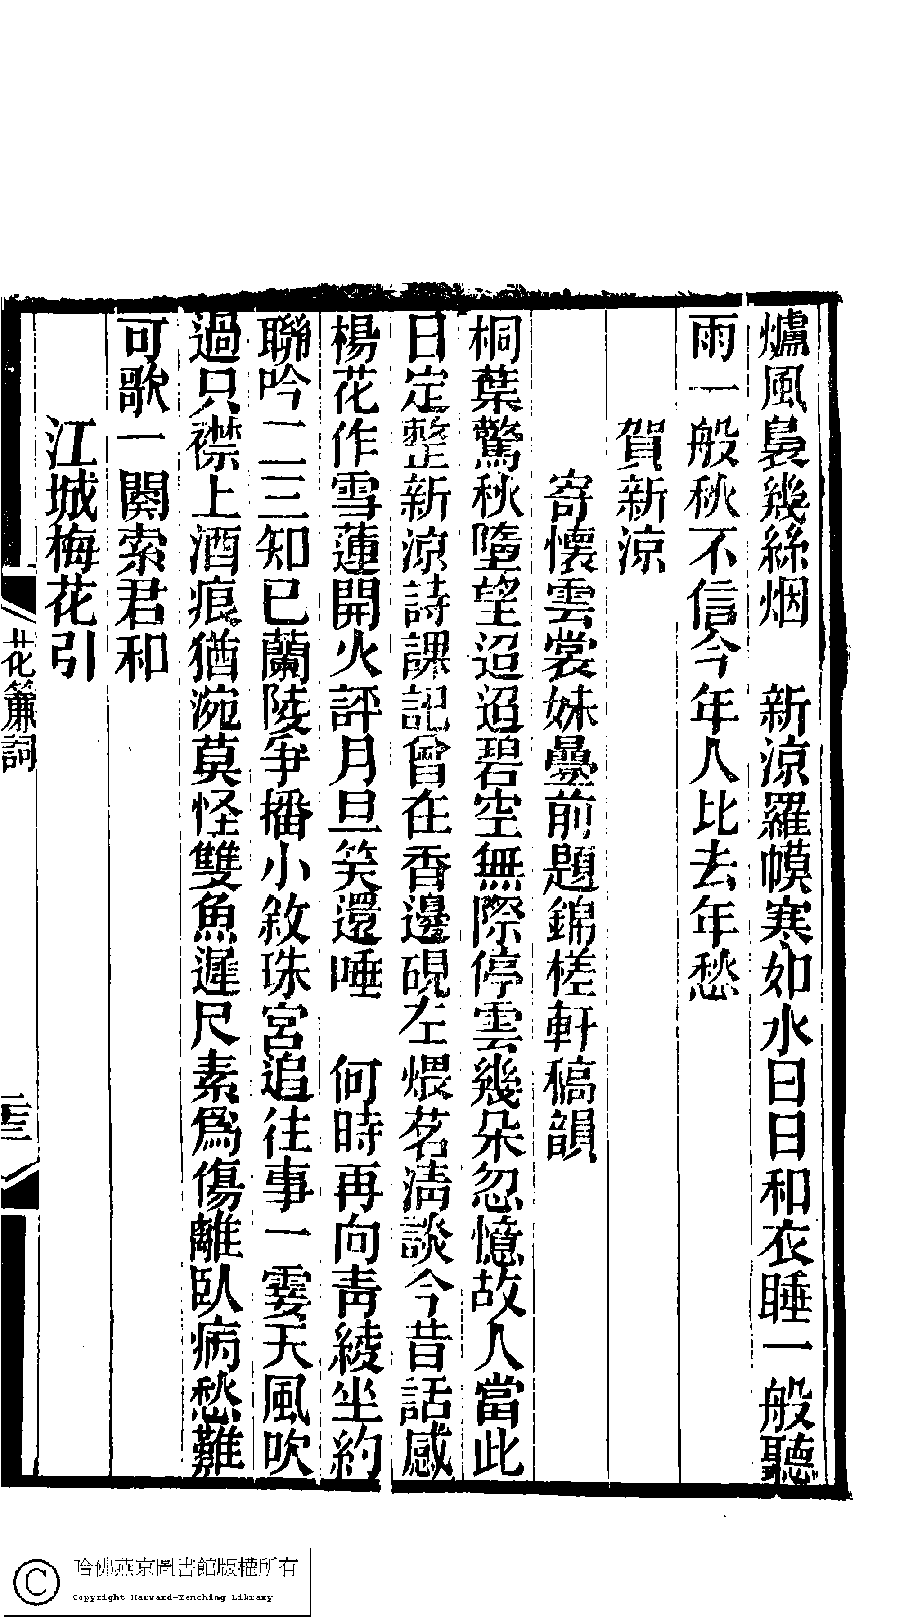 爐風裊幾絲烟　新涼羅幙寒如水日日和衣睡一般聽
雨一般秋不信今年人比去年愁
賀新涼
寄懷雲裳妹疊前題錦槎軒稿韻
桐葉驚秋墮望迢迢碧空無際停雲幾朵忽憶故人當此
日定整新涼詩課記曾在香邊硯左煨茗清談今昔話感
楊花作雪蓮開火評月旦笑還唾　何時再向青綾坐約
聯吟二三知已蘭陵爭播小敘珠宮追往事一霎天風吹
過只襟上酒痕猶涴莫怪雙魚遲尺素爲傷離臥病愁難
可歌一闋索君和
江城梅花引
花簾詞
二三
哈佛燕京圖書館版權所有
Copyright Harvard-Yenching Library